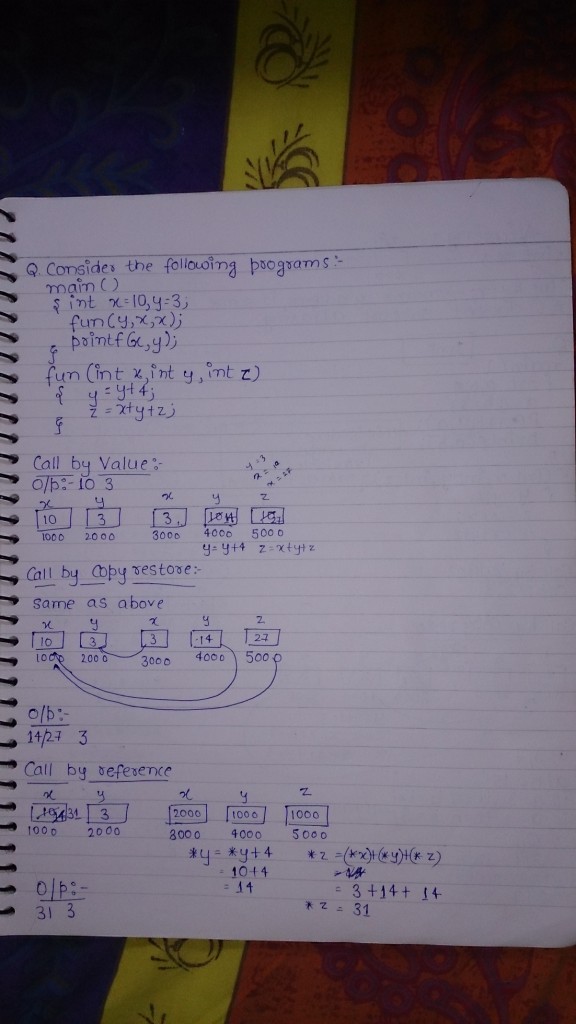 Q. Consider the following programs:-
main()
{ int x=10,y=3;
fun(y,x,x);
printf(x,y);
}
fun (int x,int y, int z)
{ y = y+4;
z = x+y+z;
}
Call by Value:-
O/p:- 10 3
y=3
x y x y z
10 3 3
1000 2000 3000 4000 5000
y=y+4 z=x+y+z
Call by Copy restore:-
same as above
x y x y z
10 3 3 14 27
1000 2000 3000 4000 5000
O/p:-
14/27 3
Call by reference
x y x y z
31 3 2000 1000 1000
1000 2000 3000 4000 5000
*y = *y+4 *z =(*x)+(*y)+(*z)
= 10+4
= 14 = 3+14+14
O/p:- *z = 31
31 3